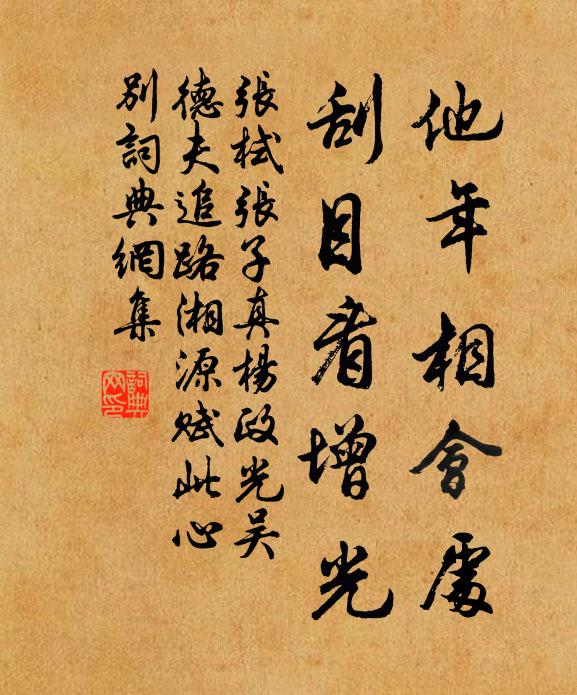 他年相會處
刮目看增光
張栻張子真楊政光吴
德夫追路湘源賦此心
別詞典網集
詞典網印